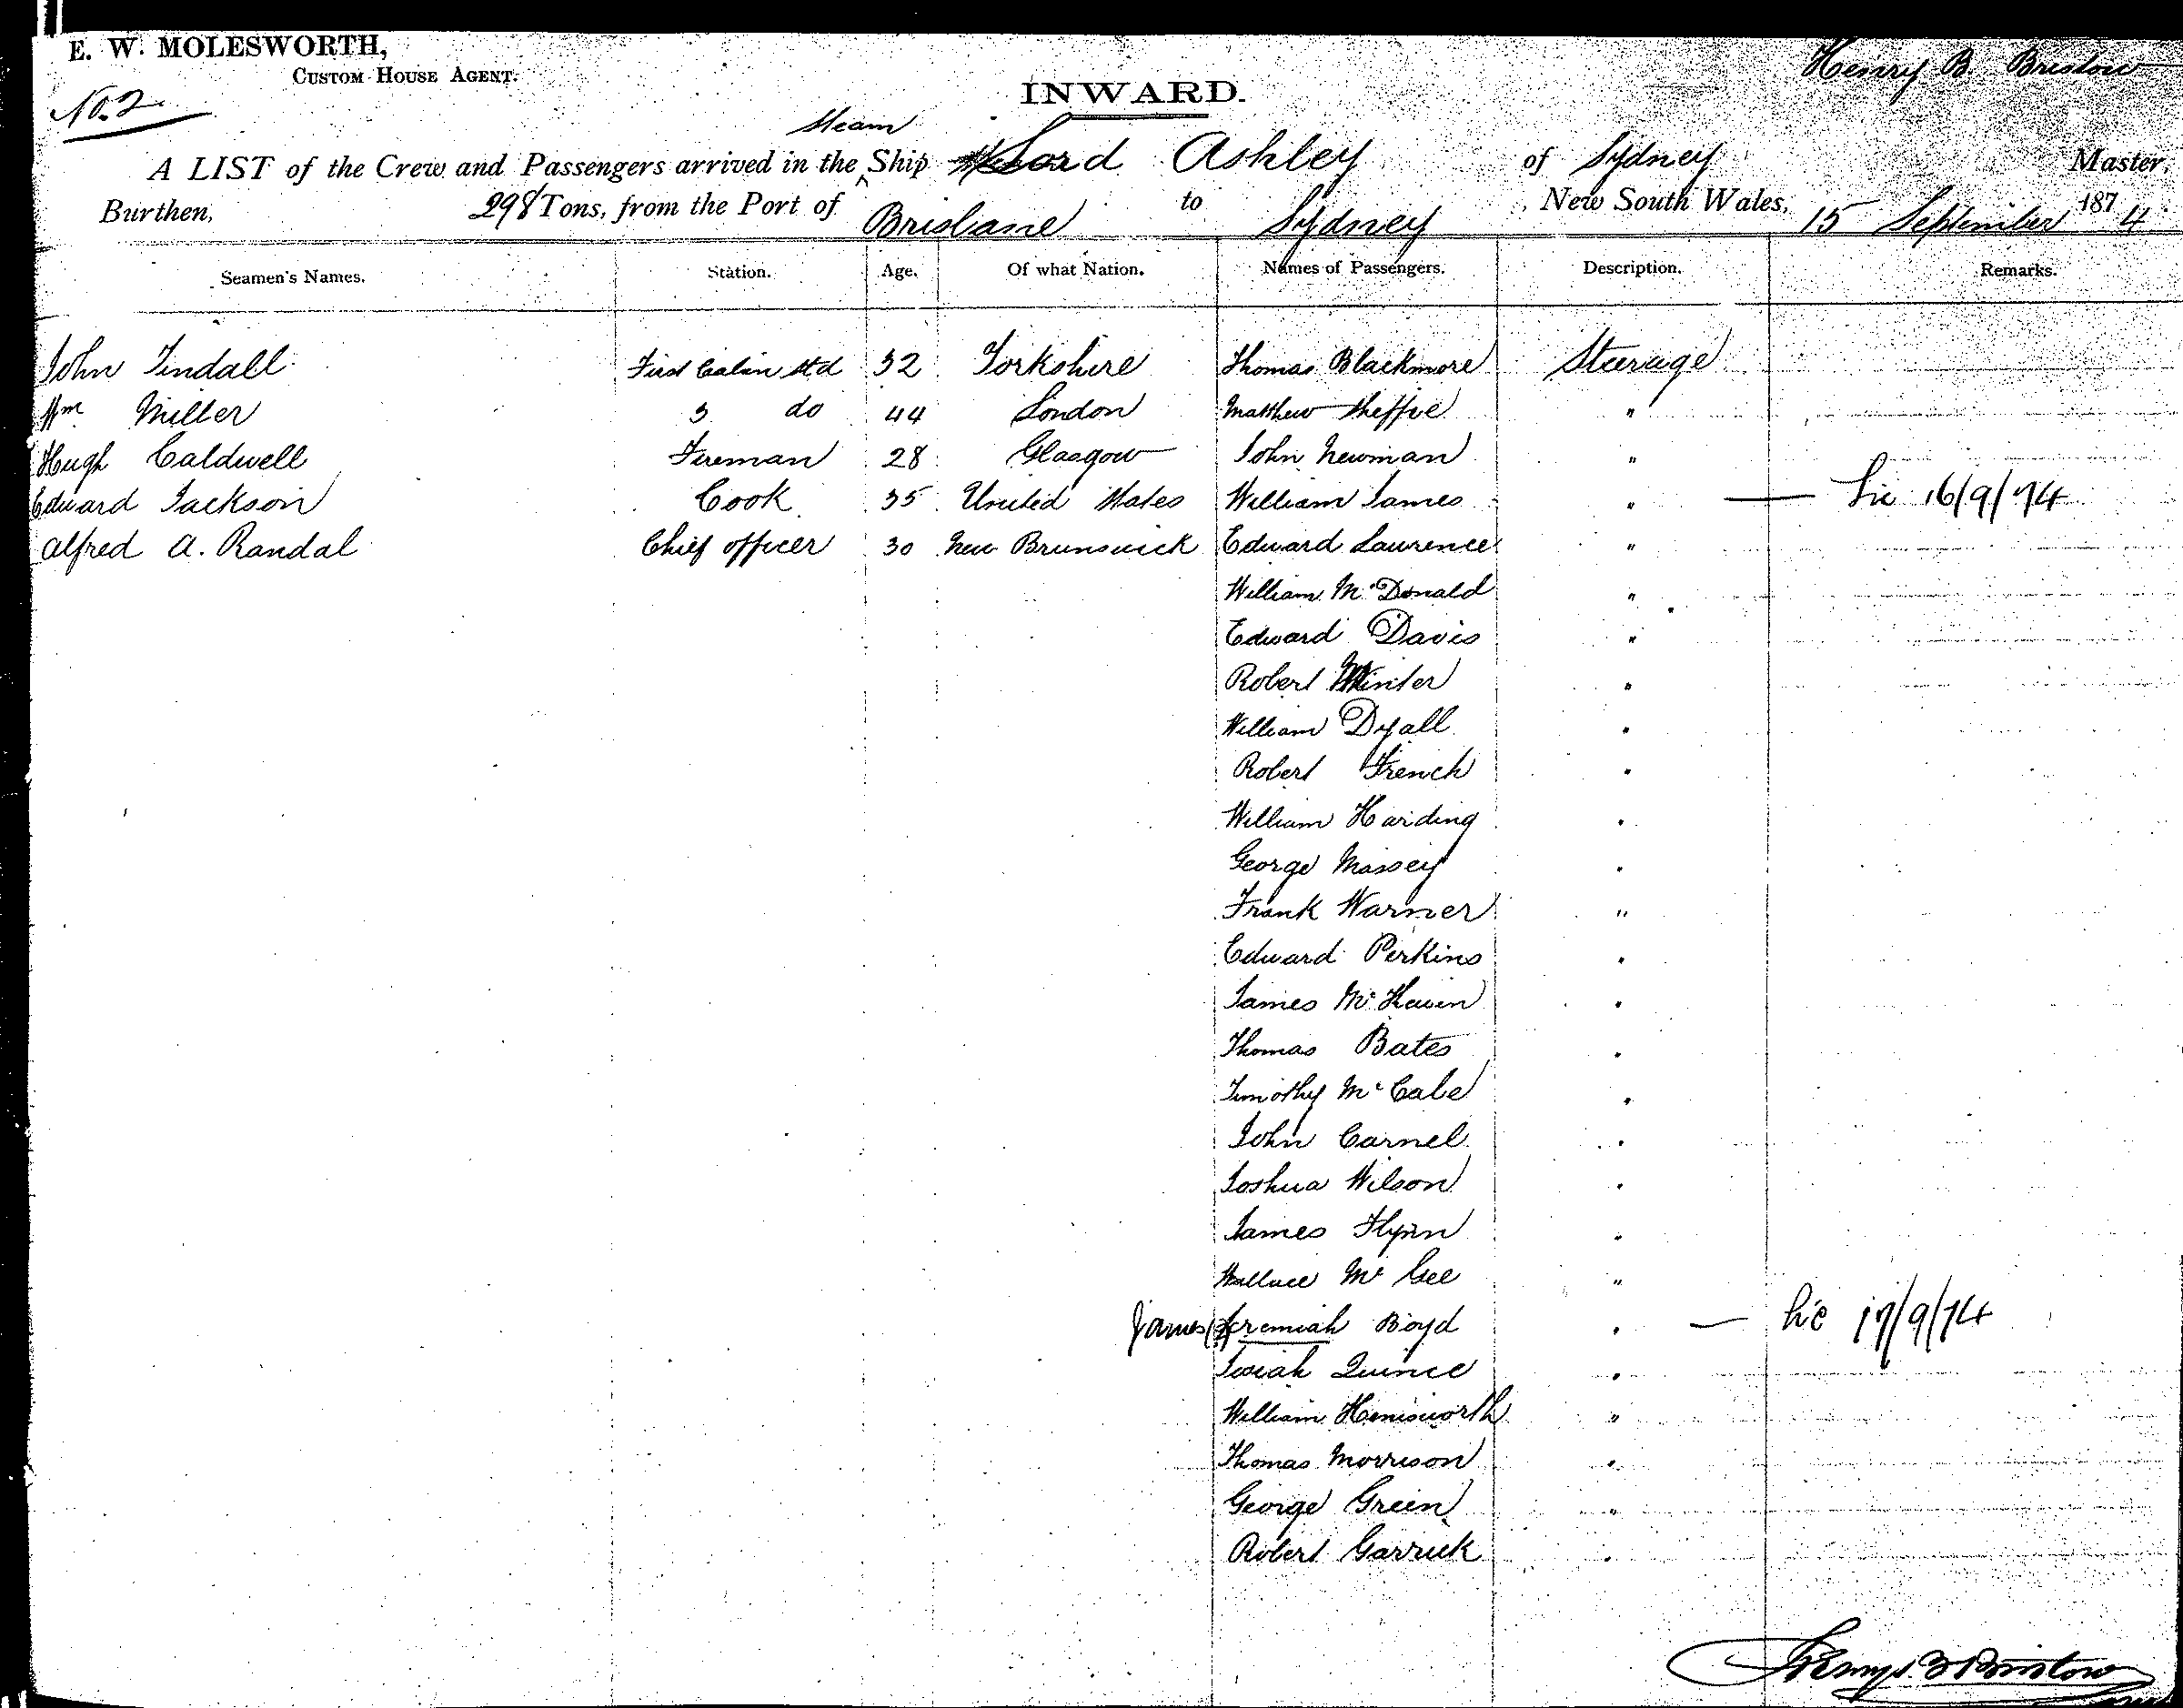 E. W. MOLESWORTH,
CUSTOM HOUSE AGENT.
No. 2
INWARD.
Henry B. Bristow
Steam
A LIST of the Crew and Passengers arrived in the Ship Lord Ashley of Sydney Master,
Burthen, 298 Tons, from the Port of Brisbane to Sydney New South Wales, 15 September 1874
Seamen's Names. Station. Age. Of what Nation. Names of Passengers. Description. Remarks.
John Tindall First Cabin Std 32 Yorkshire Thomas Blackmore Steerage
Wm Miller 3 do 44 London Matthew "
Hugh Caldwell Fireman 28 Glasgow John Newman "
Edward Jackson Cook 35 United States William James " — Lic 16/9/74
Alfred A. Randal Chief officer 30 New Brunswick Edward Laurence "
William McDonald "
Edward Davis "
Robert Winter "
William Dyall "
Robert French "
William Harding "
George Massey "
Frank Warner "
Edward Perkins "
James "
Thomas Bates "
Timothy McCabe "
John Carnel "
Joshua Wilson "
James Flynn "
Wallace McGee "
James Jeremiah Boyd " — Lic 17/9/74
Josiah Quince "
William Hemsworth "
Thomas Morrison "
George Green "
Robert Garrick "
Henry B Bristow